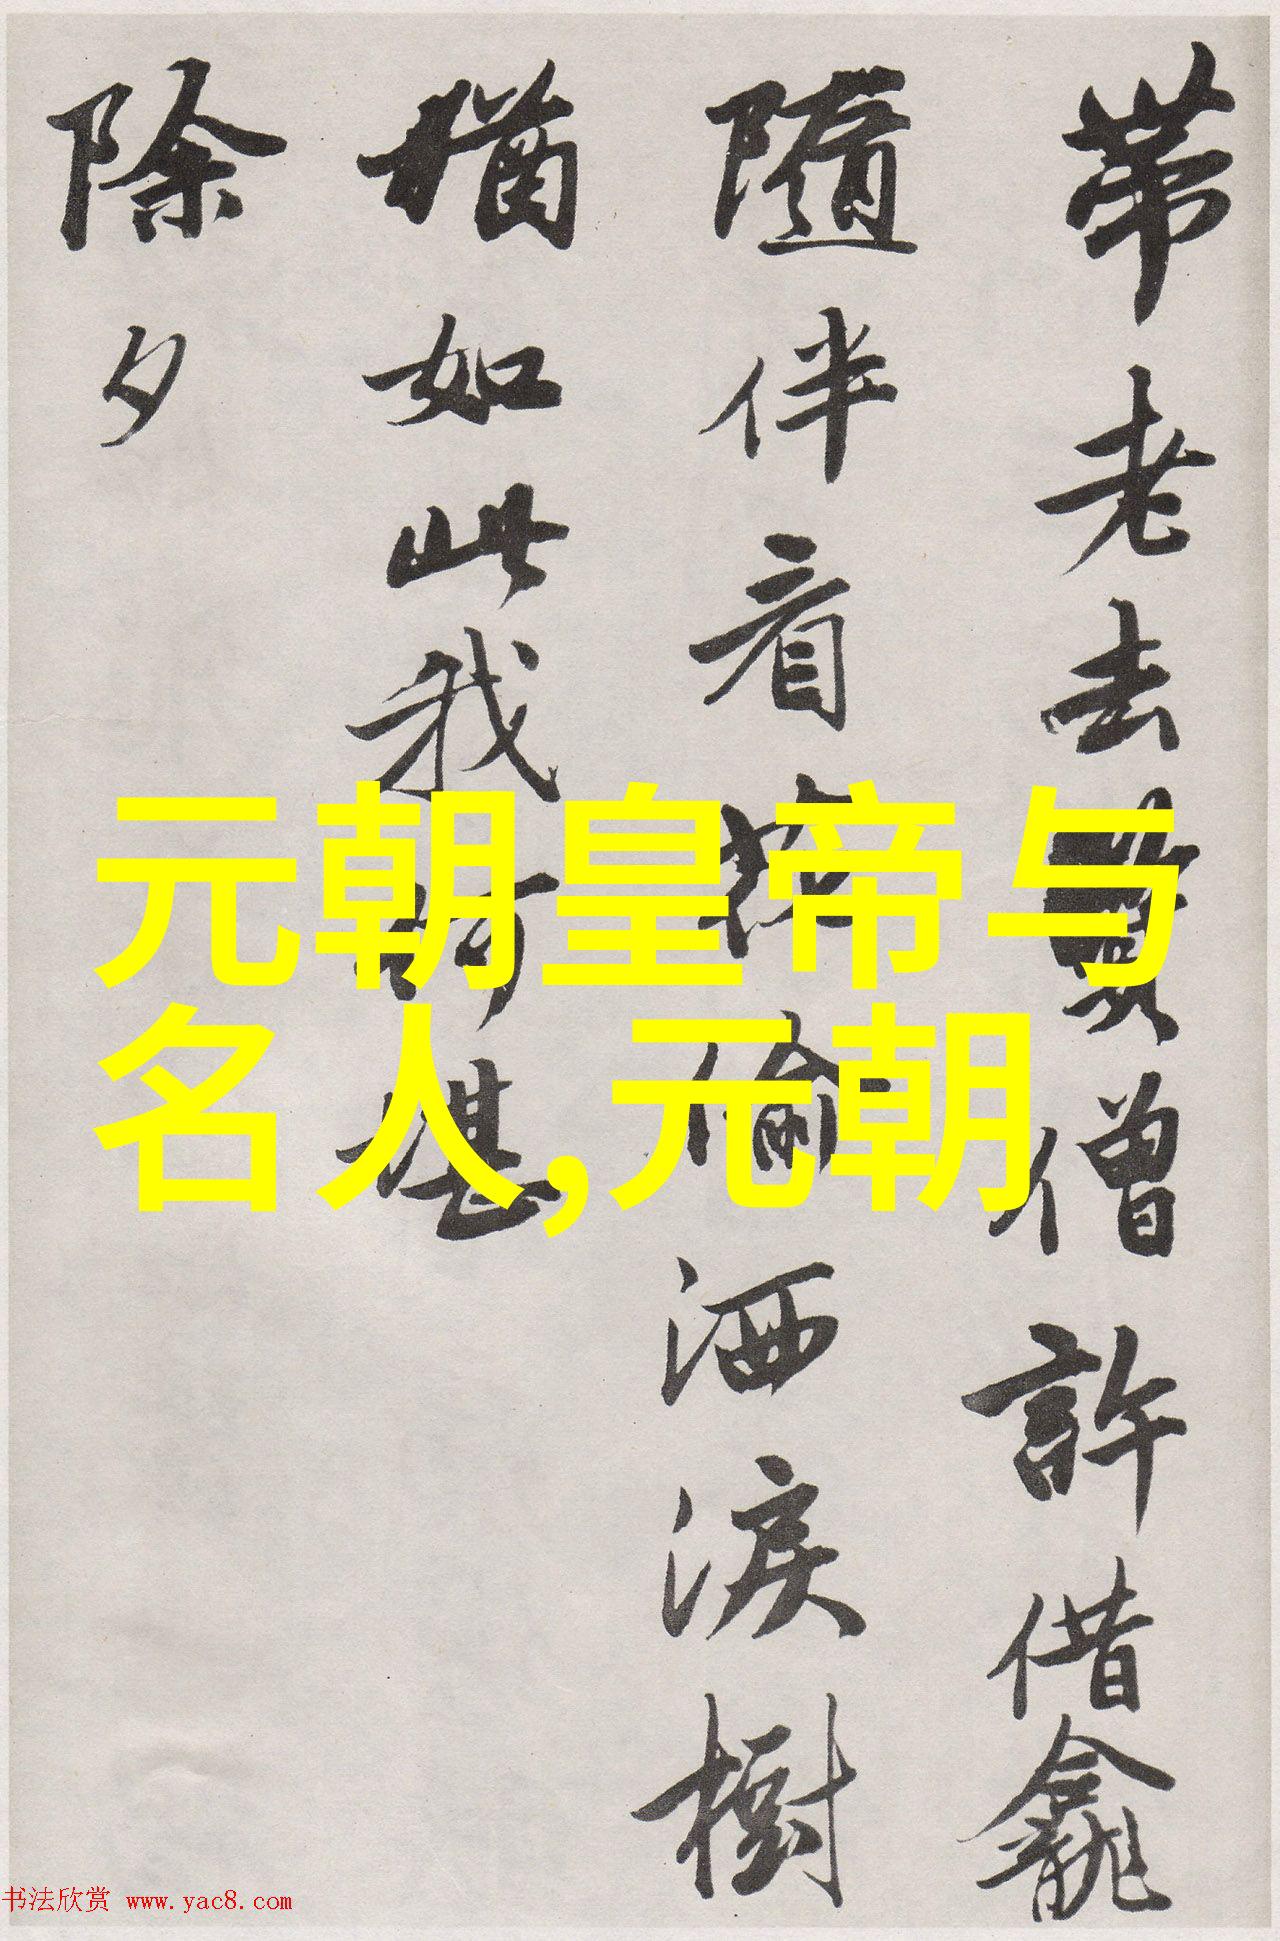 帶老去僧許借龕
隨伴看偷洒淚樹
猶如此我何堪
除夕
元朝皇帝与
名人,元朝
书法欣赏 www.yac8.com